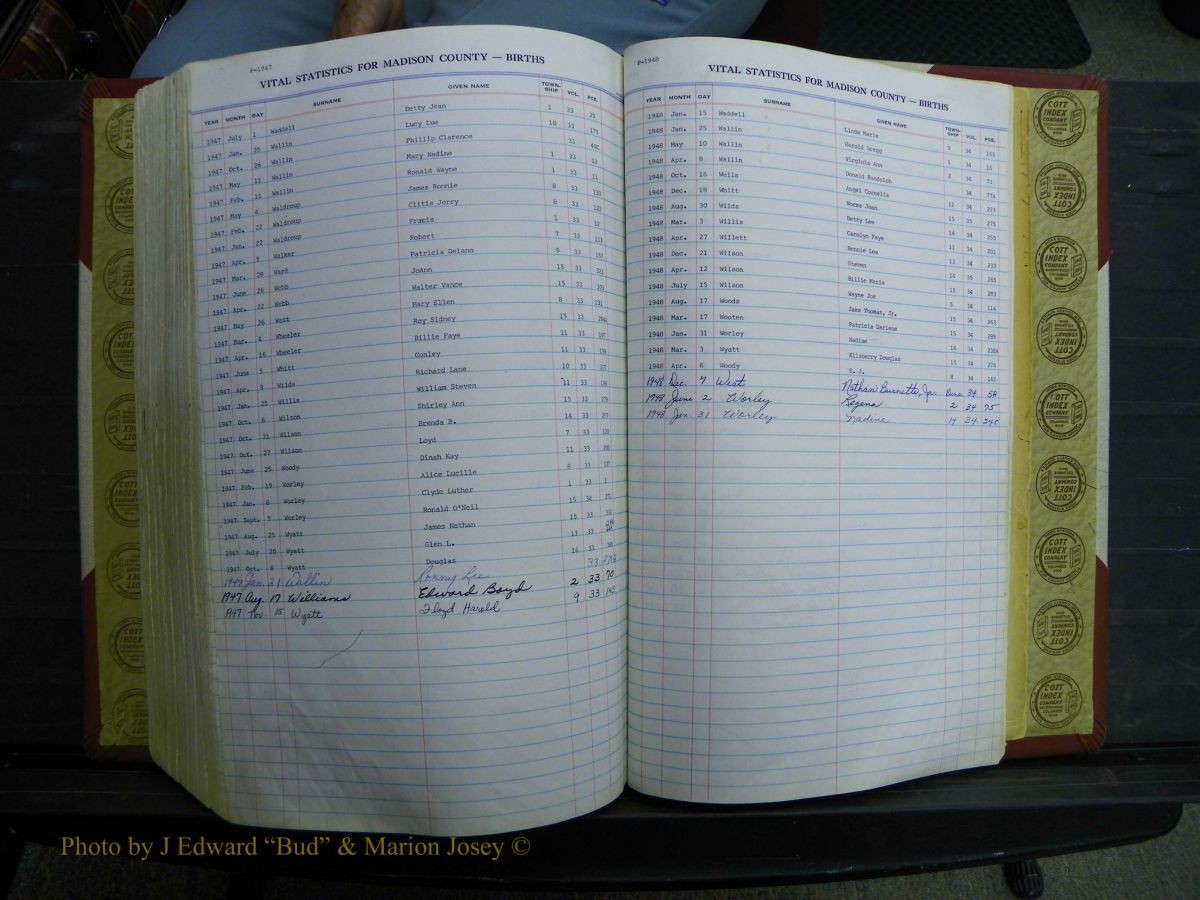 P-1947
VITAL STATISTICS FOR MADISON COUNTY — BIRTHS
YEAR MONTH DAY SURNAME GIVEN NAME TOWN-SHIP VOL. PGE.
1947 July 1 Waddell Betty Jean 1 33 25
1947 Jan. 25 Wallin Lucy Lue 10 33 175
1947 Oct. 26 Wallin Phillip Clarence 33 40C
1947 May 11 Wallin Mary Nadine 1 33 22
1947 Feb. 11 Wallin Ronald Wayne 1 33 11
1947 May 4 Waldroup James Ronnie 8 33 130
1947 Feb. 22 Waldroup Clitis Jerry 8 33 123
1947 Jan. 22 Waldroup Francis 1 33 12
1947 Apr. 5 Walker Robert 7 33 113
1947 Mar. 28 Ward Patricia Delano 9 33 157
1947 June 26 Webb JoAnn 15 33 321
1947 Apr. 22 Webb Walter Vance 15 33 303
1947 May 26 West Mary Ellen 8 33 131
1947 Mar. 4 Wheeler Roy Sidney 15 33 294A
1947 Apr. 16 Wheeler Billie Faye 11 33 197
1947 June 5 Whitt Conley 11 33 199
1947 Apr. 9 Wilds Richard Lane 10 33 177
1947 Jan. 25 Willis William Steven 11 33 186
1947 Oct. 6 Wilson Shirley Ann 15 33 279
1947 Oct. 31 Wilson Brenda B. 14 33 277
1947 Oct. 27 Wilson Loyd 7 33 120
1947 June 25 Woody Dinah Kay 11 33 200
1947 Feb. 19 Worley Alice Lucille 8 33 127
1947 Jan. 8 Worley Clyde Luther 1 33 1
1947 Sept. 7 Worley Ronald O'Neil 15 34 271
1947 Aug. 25 Wyatt James Nathan 15 33 332
1947 July 20 Wyatt Glen L. 13 33
1947 Oct. 6 Wyatt Douglas 16 33
1947 Jan. 21 Wallin Ronny Lee 33
1947 Aug. 17 Williams Edward Boyd 2 33 70
1947 Nov 15 Wyatt Floyd Harold 9 33 145
P-1948
VITAL STATISTICS FOR MADISON COUNTY — BIRTHS
YEAR MONTH DAY SURNAME GIVEN NAME TOWN-SHIP VOL. PGE.
1948 Jan. 15 Waddell Linda Marie 9 34 165
1948 Jan. 25 Wallin Harold Gregg 1 34 16
1948 May 10 Wallin Virginia Ann 2 34 73
1948 Apr. 6 Wallin Donald Randolph 34 77A
1948 Oct. 16 Wells Angel Cornelia 12 34 223
1948 Dec. 18 Whitt Norma Jean 15 35 275
1948 Aug. 30 Wilds Betty Lee 14 34 250
1948 Mar. 3 Willis Carolyn Faye 11 34 201
1948 Apr. 27 Willett Bennie Lee 13 34 233
1948 Dec. 21 Wilson Steven 14 35 265
1948 Apr. 12 Wilson Billie Marie 15 34 283
1948 July 15 Wilson Wayne Joe 5 34 116
1948 Aug. 17 Woods Jake Thomas, Jr. 15 34 263
1948 Mar. 17 Wooten Patricia Darlene 15 34 289
1948 Jan. 31 Worley Nadine 14 34 238A
1948 Mar. 3 Wyatt Ellsberry Douglas 15 34 270
1948 Apr. 6 Woody E. J. 8 34 142
1948 Dec. 7 West Nathan Burnette, Jr. 34 5A
1948 June 2 Worley Regena 2 34 75
1948 Jan 31 Worley Nadine 14 34 240
COTT INDEX COMPANY
COLUMBUS OHIO
Photo by J Edward “Bud” & Marion Josey ©